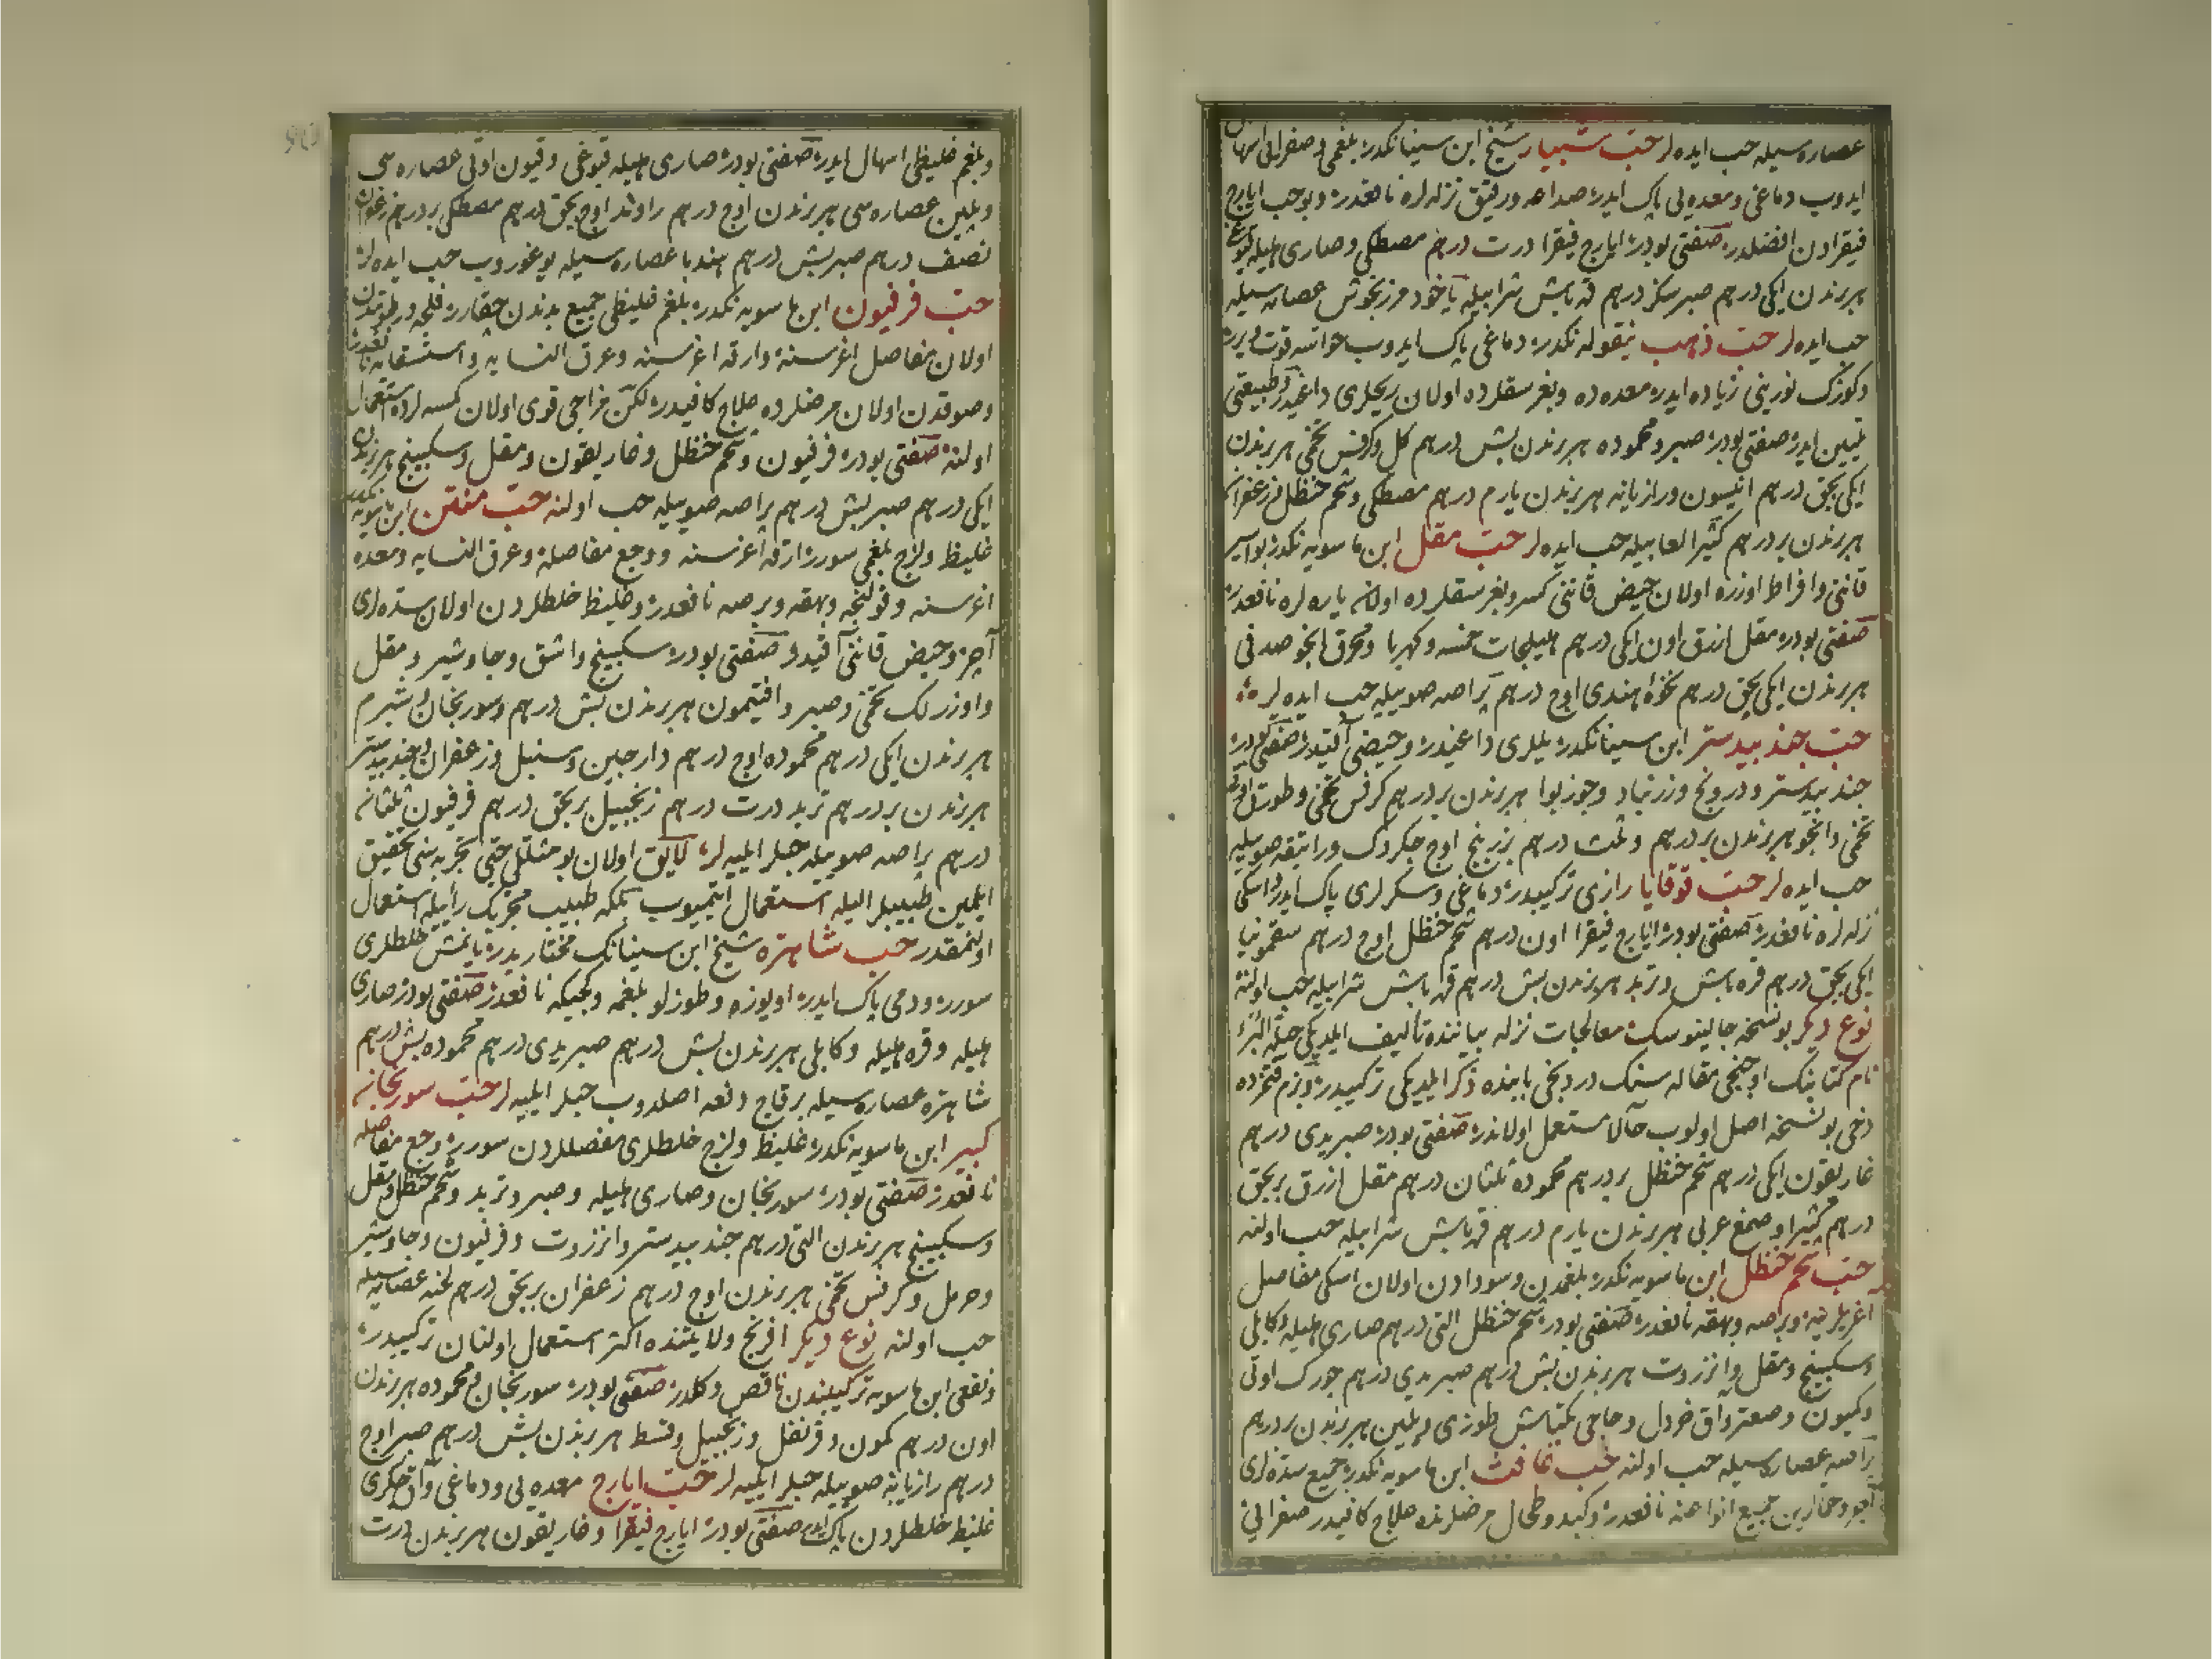 عصاره سیله حب ایده لر حب شبیار شیخ ابن سینانکدر بلغمی و صفرایی اسهال
ایدوب دماغی و معده یی پاک ایدر صداعه و رقیق نزله لره نافعدر و بو حب ایارج
فیقرادن افضلدر صنعتی بودر ایارج فیقرا درت درهم مصطکی و صاری هلیله قبوغی
هر برندن ایکی درهم صبر سکز درهم قره باش شرابیله یاخود مرزنجوش عصاره سیله
حب ایده لر حب ذهب نیقوله نکدر دماغی پاک ایدوب حواسه قوت ویرر
و کوزک نورینی زیاده ایدر معده ده و بغرسقلرده اولان ریحلری داغیدر و طبیعتی
تلیین ایدر صنعتی بودر صبر و محموده هر برندن بش درهم کل و کرفس تخمی هر برندن
ایکی بچق درهم انیسون و رازیانه هر برندن یارم درهم مصطکی و شحم حنظل و زعفران
هر برندن بر درهم کثیرا لعابیله حب ایده لر حب مقل ابن ماسویه نکدر بواسیر
قاننی و افراط اوزره اولان حیض قاننی کسر و بغرسقلرده اولان یاره لره نافعدر
صنعتی بودر مقل ازرق اون ایکی درهم هلیلجات خمسه و کهربا و محرق انجو صدفی
هر برندن ایکی بچق درهم نخوۀ هندی اوچ درهم پراصه صوییله حب ایده لر
حب جندبیدستر ابن سینانکدر یللری داغیدر و حیضی آقیدر صنعتی بودر
جندبیدستر و درونج و زرنباد و جوزبوا هر برندن بر درهم کرفس تخمی و طورق اوتی
تخمی و انجو هر برندن بر درهم و ثلث درهم بزرنج اوچ چکردک و راتیقه صوییله
حب ایده لر حب قوقایا رازی ترکیبدر دماغی و سکرلری پاک ایدر و اسکی
نزله لره نافعدر صنعتی بودر ایارج فیقرا اون درهم شحم حنظل اوچ درهم سقمونیا
ایکی بچق درهم قره باش و تربد هر برندن بش درهم قره باش شرابیله حب اولنه
نوع دیگر بو نسخه جالینوسک معالجات نزله بیاننده تألیف ایلدیکی حیلة البرء
نام کتابنک اوچنجی مقاله سنک دردنجی بابنده ذکر ایلدیکی ترکیبدر و بزم قتمزده
دخی بو نسخه اصل اولوب حالا مستعمل اولاندر صنعتی بودر صبر یدی درهم
غاریقون ایکی درهم شحم حنظل بر درهم محموده ثلثان درهم مقل ازرق بر بچق
درهم کثیرا و صمغ عربی هر برندن یارم درهم قره باش شرابیله حب اولنه
حب شحم حنظل ابن ماسویه نکدر بلغمدن و سودادن اولان اسکی مفاصل
آغریلرینه و برصه و بهقه نافعدر صنعتی بودر شحم حنظل التی درهم صاری هلیله و کابلی
و سکبینج و مقل و انزروت هر برندن بش درهم صبر یدی درهم چورک اوتی
و کمون و صعتر و آق خردل و حاجی بکتاش طوزی و پلین هر برندن بر درهم
پراصه عصاره سیله حب اولنه حب غافث ابن ماسویه نکدر جمیع سده لری
آچر و حمالرین جمیع انواعنه نافعدر و کبد و طحال مرضلرنده علاج کافیدر صفرایی
و بلغم غلیظی اسهال ایدر صنعتی بودر صاری هلیله قبوغی و قیون اوتی عصاره سی
و پلین عصاره سی هر برندن اوچ درهم راوند اوچ بچق درهم مصطکی بر درهم زعفران
نصف درهم صبر بش درهم هندبا عصاره سیله یوغوروب حب ایده لر
حب فرفیون ابن ماسویه نکدر بلغم غلیظی جمیع بدندن چقارر فلجه و رطوبتدن
اولان مفاصل اغرسنه و ارقه اغرسنه و عرق النسایه و استسقایه نافعدر
و صوقدن اولان مرضلرده علاج کافیدر لکن مزاجی قوی اولان کمسه لرده استعمال
اولنه صنعتی بودر فرفیون و شحم حنظل و غاریقون و مقل و سکبینج هر برندن
ایکی درهم صبر بش درهم پراصه صوییله حب اولنه حب منتن ابن ماسویه نکدر
غلیظ و لزج بلغمی سورر ارقه اغرسنه و وجع مفاصله و عرق النسایه و معده
اغرسنه و قولنجه و بهقه و برصه نافعدر و غلیظ خلطلردن اولان سده لری
آچر و حیض قاننی آقیدر صنعتی بودر سکبینج و اشق و جاوشیر و مقل
و اوزرلک تخمی و صبر و افتیمون هر برندن بش درهم و سورنجان و شبرم
هر برندن ایکی درهم محموده اوچ درهم دارچین و سنبل و زعفران و جندبیدستر
هر برندن بر درهم تربد درت درهم زنجبیل بر بچق درهم فرفیون ثلثان
درهم پراصه صوییله حبلر ایلیه لر لایق اولان بو مثللی حبی تجربه سنی تحقیق
ایلمین طبیبلر الیله استعمال ایتمیوب بلکه طبیب مجربک رأییله استعمال
اولنمقدر حب شاهتره شیخ ابن سینانک مختاریدر یانمش خلطلری
سورر و دمی پاک ایدر اویوزه و طوزلو بلغمه و کجیکه نافعدر صنعتی بودر صاری
هلیله و قره هلیله و کابلی هر برندن بش درهم صبر یدی درهم محموده بش درهم
شاهتره عصاره سیله بر قاچ دفعه اصلدوب حبلر ایلیه لر حب سورنجان
کبیر ابن ماسویه نکدر غلیظ و لزج خلطلری مفصللردن سورر وجع مفاصله
نافعدر صنعتی بودر سورنجان و صاری هلیله و صبر و تربد و شحم حنظل و مقل
و سکبینج هر برندن التی درهم جندبیدستر و انزروت و فرفیون و جاوشیر
و حرمل و کرفس تخمی هر برندن اوچ درهم زعفران بر بچق درهم لخنه عصاره سیله
حب اولنه نوع دیگر افرنج ولایتنده اکثر استعمال اولنان ترکیبدر
و نفعی ابن ماسویه ترکیبندن ناقص دکلدر صنعتی بودر سورنجان و محموده هر برندن
اون درهم کمون و قرنفل و زنجبیل و قسط هر برندن بش درهم صبر اوچ
درهم رازیانه صوییله حبلر ایلیه لر حب ایارج معده یی و دماغی و آق جکری
غلیظ خلطلردن پاک ایدر صنعتی بودر ایارج فیقرا و غاریقون هر برندن درت